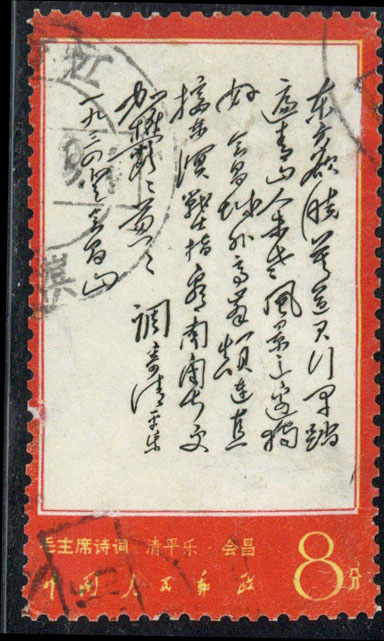 东方欲晓莫道君行早踏
遍青山人未老風景这边独
好 会昌城外高峰颠连直
接东溟戰士指看南粤更
加欝々葱々 调寄清平乐
一九三四年登会昌山
江
毛主席诗词 清平乐·会昌
中国人民邮政
8分